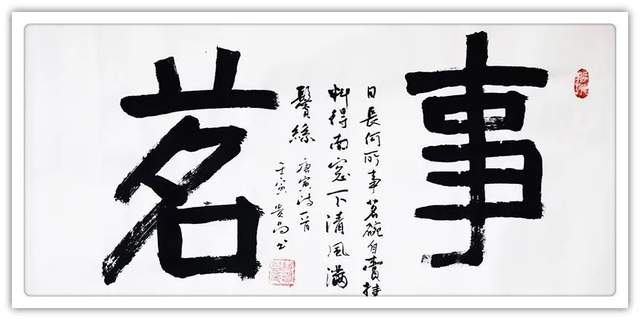 事
日長何所事茗碗自賫持
料得南窓下清風滿
鬢絲 唐寅詩一首
壬寅
茗